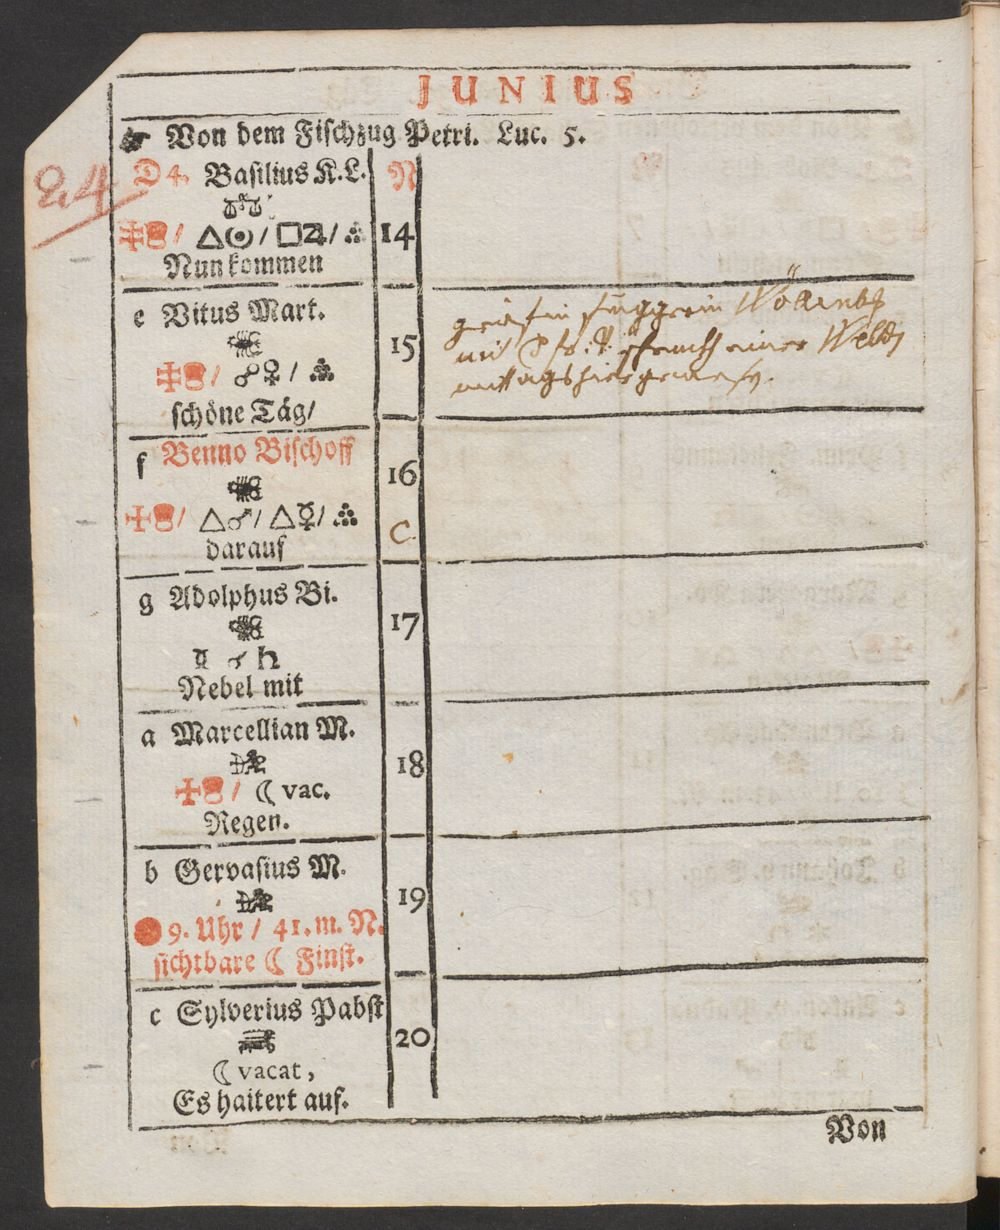 JUNIUS
Von dem Fischzug Petri. Luc. 5.
24
D 4. Basilius K.L. N
△☉/□♃/
14
Nun kommen
e Vitus Mart.
15
☍♀/
schöne Täg/
mittags hier
f Benno Bischoff
16
△♂/△☿/
C.
darauf
g Adolphus Bi.
17
☌ ♄
Nebel mit
a Marcellian M.
18
☾ vac.
Regen.
b Gervasius M.
19
9. Uhr / 41. m. N.
sichtbare ☾ Finst.
c Sylverius Pabst
20
☾ vacat,
Es haitert auf.
Von